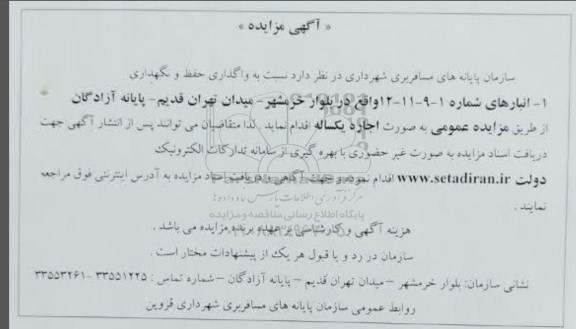 « آگهی مزایده »
سازمان پایانه های مسافربری شهرداری در نظر دارد نسبت به واگذاری حفظ و نگهداری
۱- انبارهای شماره ۱-۹-۱۱-۱۲واقع در بلوار خرمشهر- میدان تهران قدیم- پایانه آزادگان
از طریق مزایده عمومی به صورت اجاره یکساله اقدام نماید . لذا متقاضیان می توانند پس از انتشار آگهی جهت
دریافت اسناد مزایده به صورت غیر حضوری با بهره گیری از سامانه تدارکات الکترونیک
دولت www.setadiran.ir اقدام نموده و جهت آگاهی و دریافت اسناد مزایده به آدرس اینترنتی فوق مراجعه
نمایند .
مرکز فرآوری اطلاعات پارس نماد داده ها
پایگاه اطلاع رسانی مناقصه و مزایده
هزینه آگهی و کارشناسی بر عهده برنده مزایده می باشد .
سازمان در رد و یا قبول هر یک از پیشنهادات مختار است .
نشانی سازمان: بلوار خرمشهر – میدان تهران قدیم – پایانه آزادگان – شماره تماس : ۳۳۵۵۱۲۲۵ -۳۳۵۵۳۲۶۱
روابط عمومی سازمان پایانه های مسافربری شهرداری قزوین